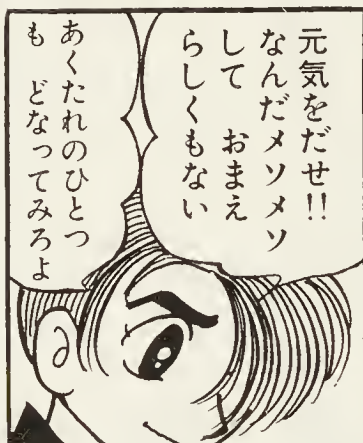 元気をだせ!!
なんだメソメソ
して　おまえ
らしくもない
あくたれのひとつ
も　どなってみろよ